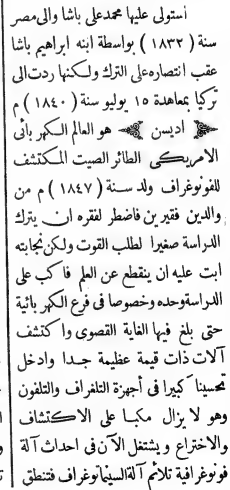 استولى عليها محمد على باشا والى مصر
سنة ( ١٨٣٢ ) بواسطة ابنه ابراهيم باشا
عقب انتصاره على الترك ولكنها ردت الى
تركيا بمعاهدة ١٥ يوليو سنة ( ١٨٤٠ ) م
اديسن هو العالم الكهربائى
الامريكى الطائر الصيت المكتشف
للفونوغراف ولد سنة ( ١٨٤٧ ) م من
والدين فقيرين فاضطر لفقره ان يترك
الدراسة صغيرا لطلب القوت ولكن نجابته
ابت عليه ان ينقطع عن العلم فاكب على
الدراسة وحده وخصوصا فى فرع الكهربائية
حتى بلغ فيها الغاية القصوى واكتشف
آلات ذات قيمة عظيمة جدا وادخل
تحسينا كبيرا فى أجهزة التلغراف والتلفون
وهو لا يزال مكبا على الاكتشاف
والاختراع ويشتغل الآن فى احداث آلة
فونوغرافية تلائم آلة السينماتوغراف فتنطق